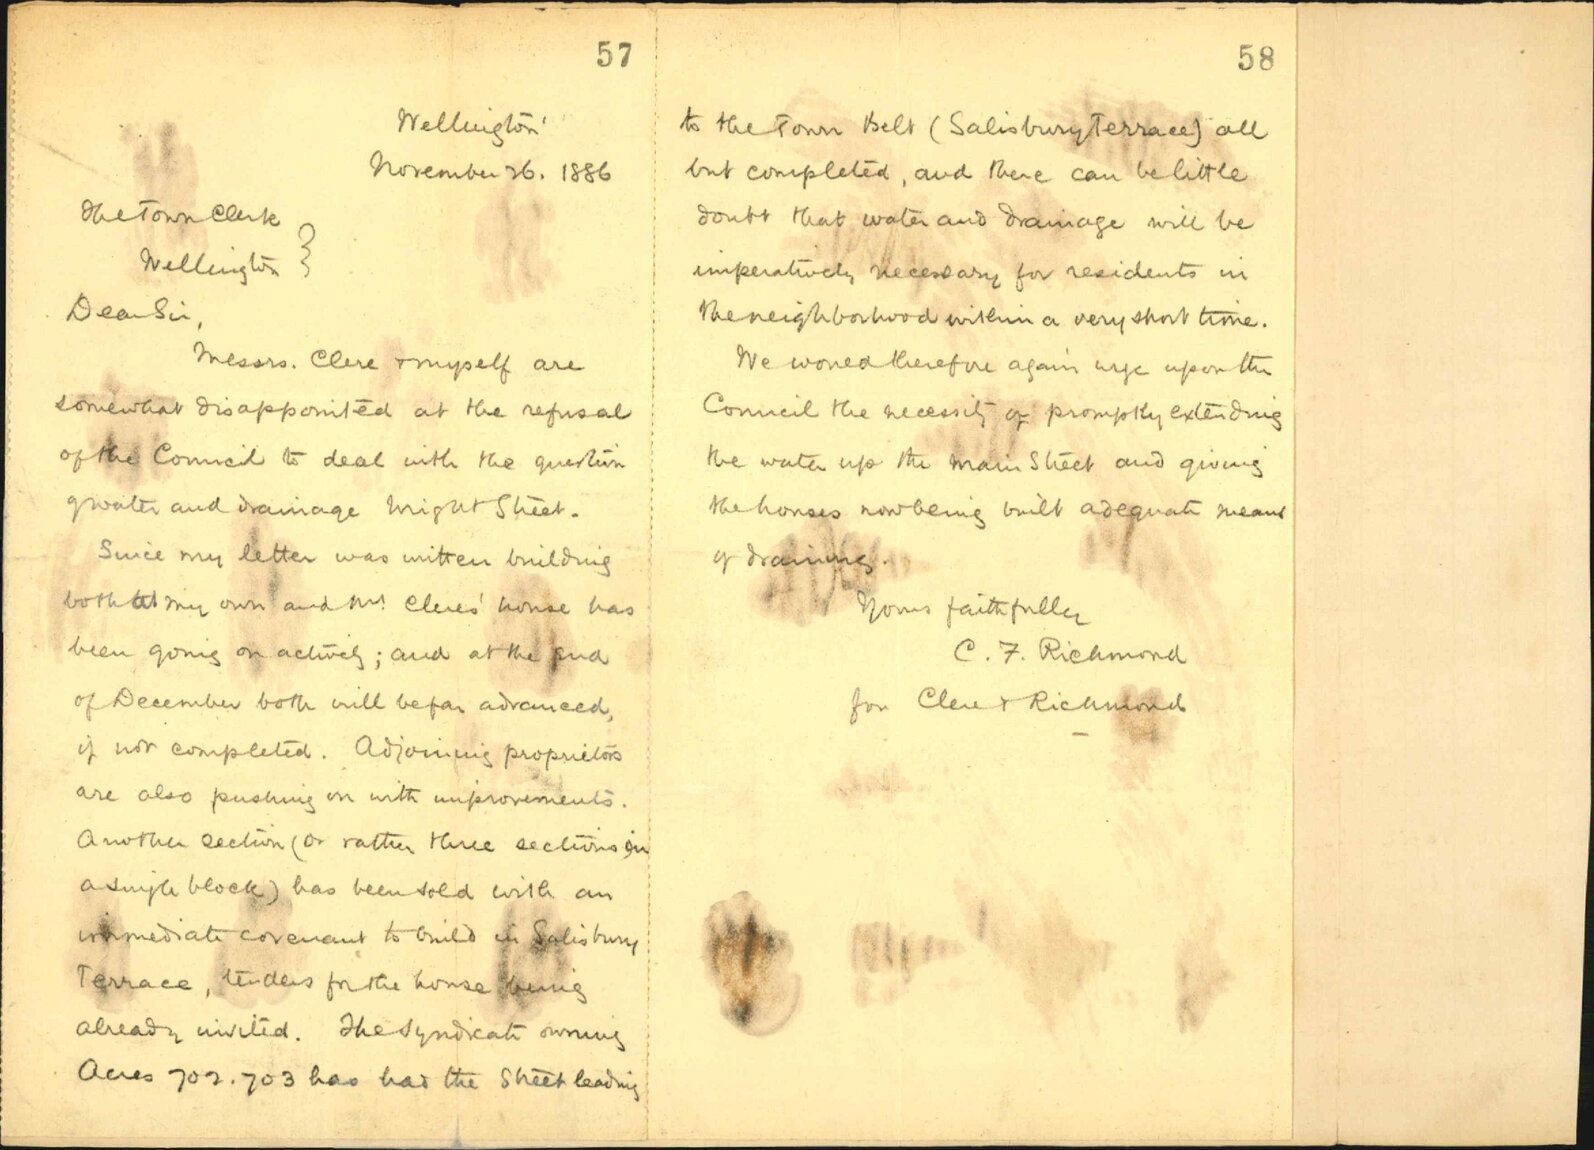 57
Wellington
November 26. 1886
The Town Clerk
Wellington }
Dear Sir,
Messrs. Clere & myself are
somewhat disappointed at the refusal
of the Council to deal with the question
of water and drainage Wright Street.
Since my letter was written building
both at my own and Mr. Cleres' house has
been going on actively; and at the end
of December both will be far advanced,
if not completed. Adjoining proprietors
are also pushing on with improvements.
Another section (or rather three sections in
a single block) has been sold with an
immediate covenant to build in Salisbury
Terrace, tenders for the house being
already invited. The Syndicate owning
Acres 702.703 has had the Street leading
58
to the Town Belt (Salisbury Terrace) all
but completed, and there can be little
doubt that water and drainage will be
imperatively necessary for residents in
the neighborhood within a very short time.
We would therefore again urge upon the
Council the necessity of promptly extending
the water up the main Street and giving
the houses now being built adequate means
of draining.
Yours faithfully
C. F. Richmond
for Clere & Richmond